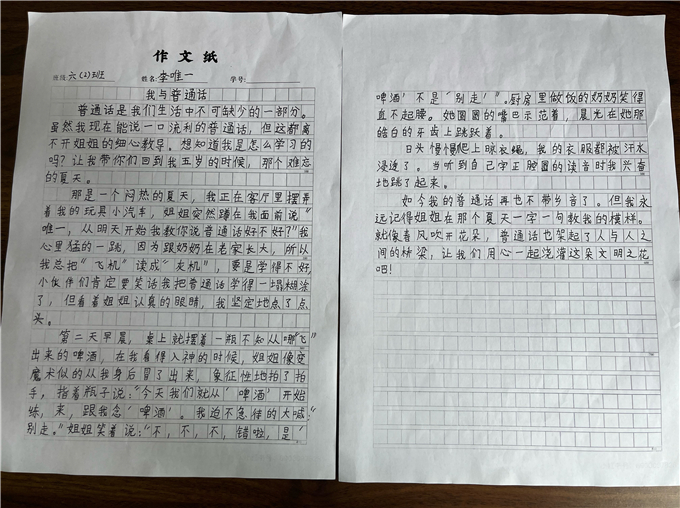 作文纸
班级:六(2)班 姓名:李唯一 学号:
我与普通话
普通话是我们生活中不可缺少的一部分。
虽然我现在能说一口流利的普通话，但这都离
不开姐姐的细心教导。想知道我是怎么学习的
吗？让我带你们回到我五岁的时候，那个难忘
的夏天。
那是一个闷热的夏天，我正在客厅里摆弄
着我的玩具小汽车，姐姐突然蹲在我面前说“
唯一，从明天开始我教你说普通话好不好？”我
心里猛的一跳，因为跟奶奶在老家长大，所以
我总把“飞机”读成“灰机”，要是学得不好，
小伙伴们肯定要笑话我把普通话学得一塌糊涂
了，但看着姐姐认真的眼睛，我坚定地点了点
头。
第二天早晨，桌上就摆着一瓶不知从哪“飞”
出来的啤酒，在我看得入神的时候，姐姐像变
魔术似的从我身后冒了出来，象征性地拍了拍
手，指着瓶子说：“今天我们就从‘啤酒’开始
练，来，跟我念‘啤酒’。我迫不急待的大喊：“
别走。”姐姐笑着说：“不，不，不，错啦，是‘
啤酒’不是‘别走’”。厨房里做饭的奶奶笑得
直不起腰。她圆圆的嘴巴示范着，晨光在她那
皓白的牙齿上跳跃着。
日头慢慢爬上晾衣绳，我的衣服都被汗水
浸透了。当听到自己字正腔圆的读音时我兴奋
地跳了起来。
如今我的普通话再也不带乡音了。但我永
远记得姐姐在那个夏天一字一句教我的模样。
就像春风吹开花朵，普通话也架起了人与人之
间的桥梁，让我们用心一起浇灌这朵文明之花
吧！